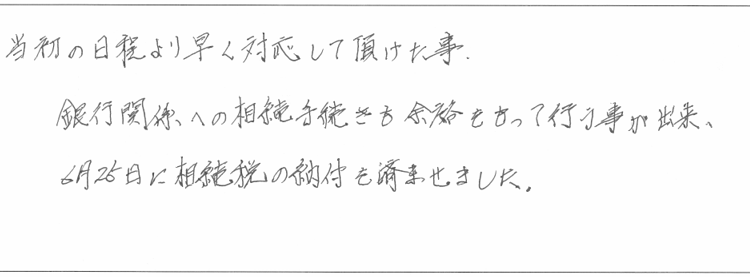 当初の日程より早く対応して頂けた事.
銀行関係への相続手続きも余裕をもって行う事が出来、
6月25日に相続税の納付も済ませました。